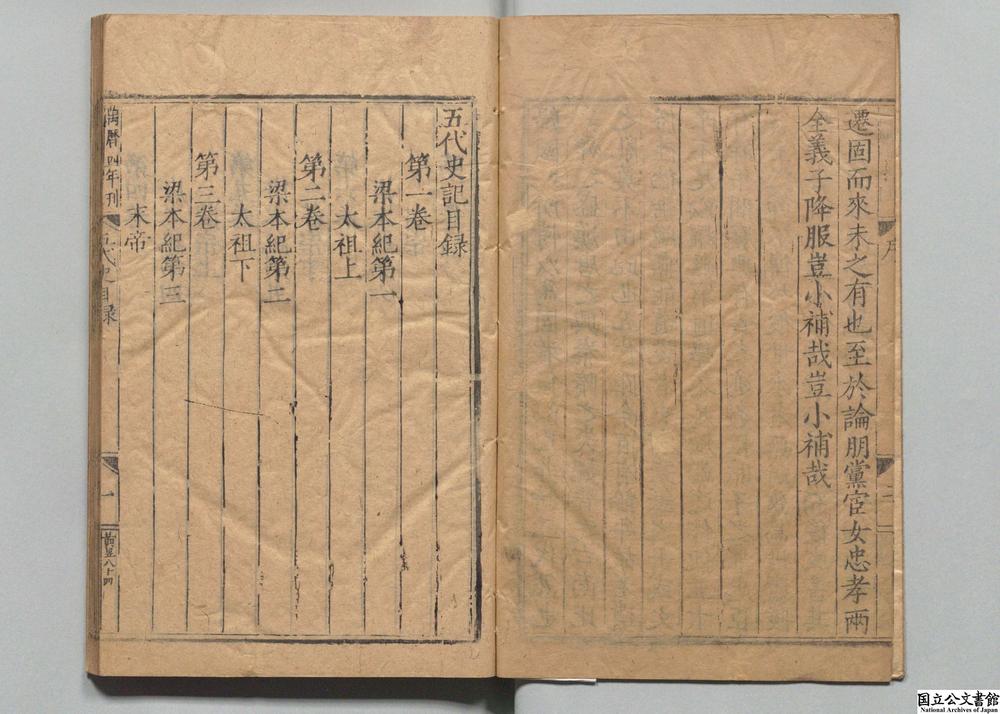 遷固而來未之有也至於論朋黨宦女忠孝兩
全義子降服豈小補哉豈小補哉
序
五代史記目録
第一卷
梁本紀第一
太祖上
第二卷
梁本紀第二
太祖下
第三卷
梁本紀第三
末帝
萬暦四年刊
五代史目録
一
国立公文書館
National Archives of Japan